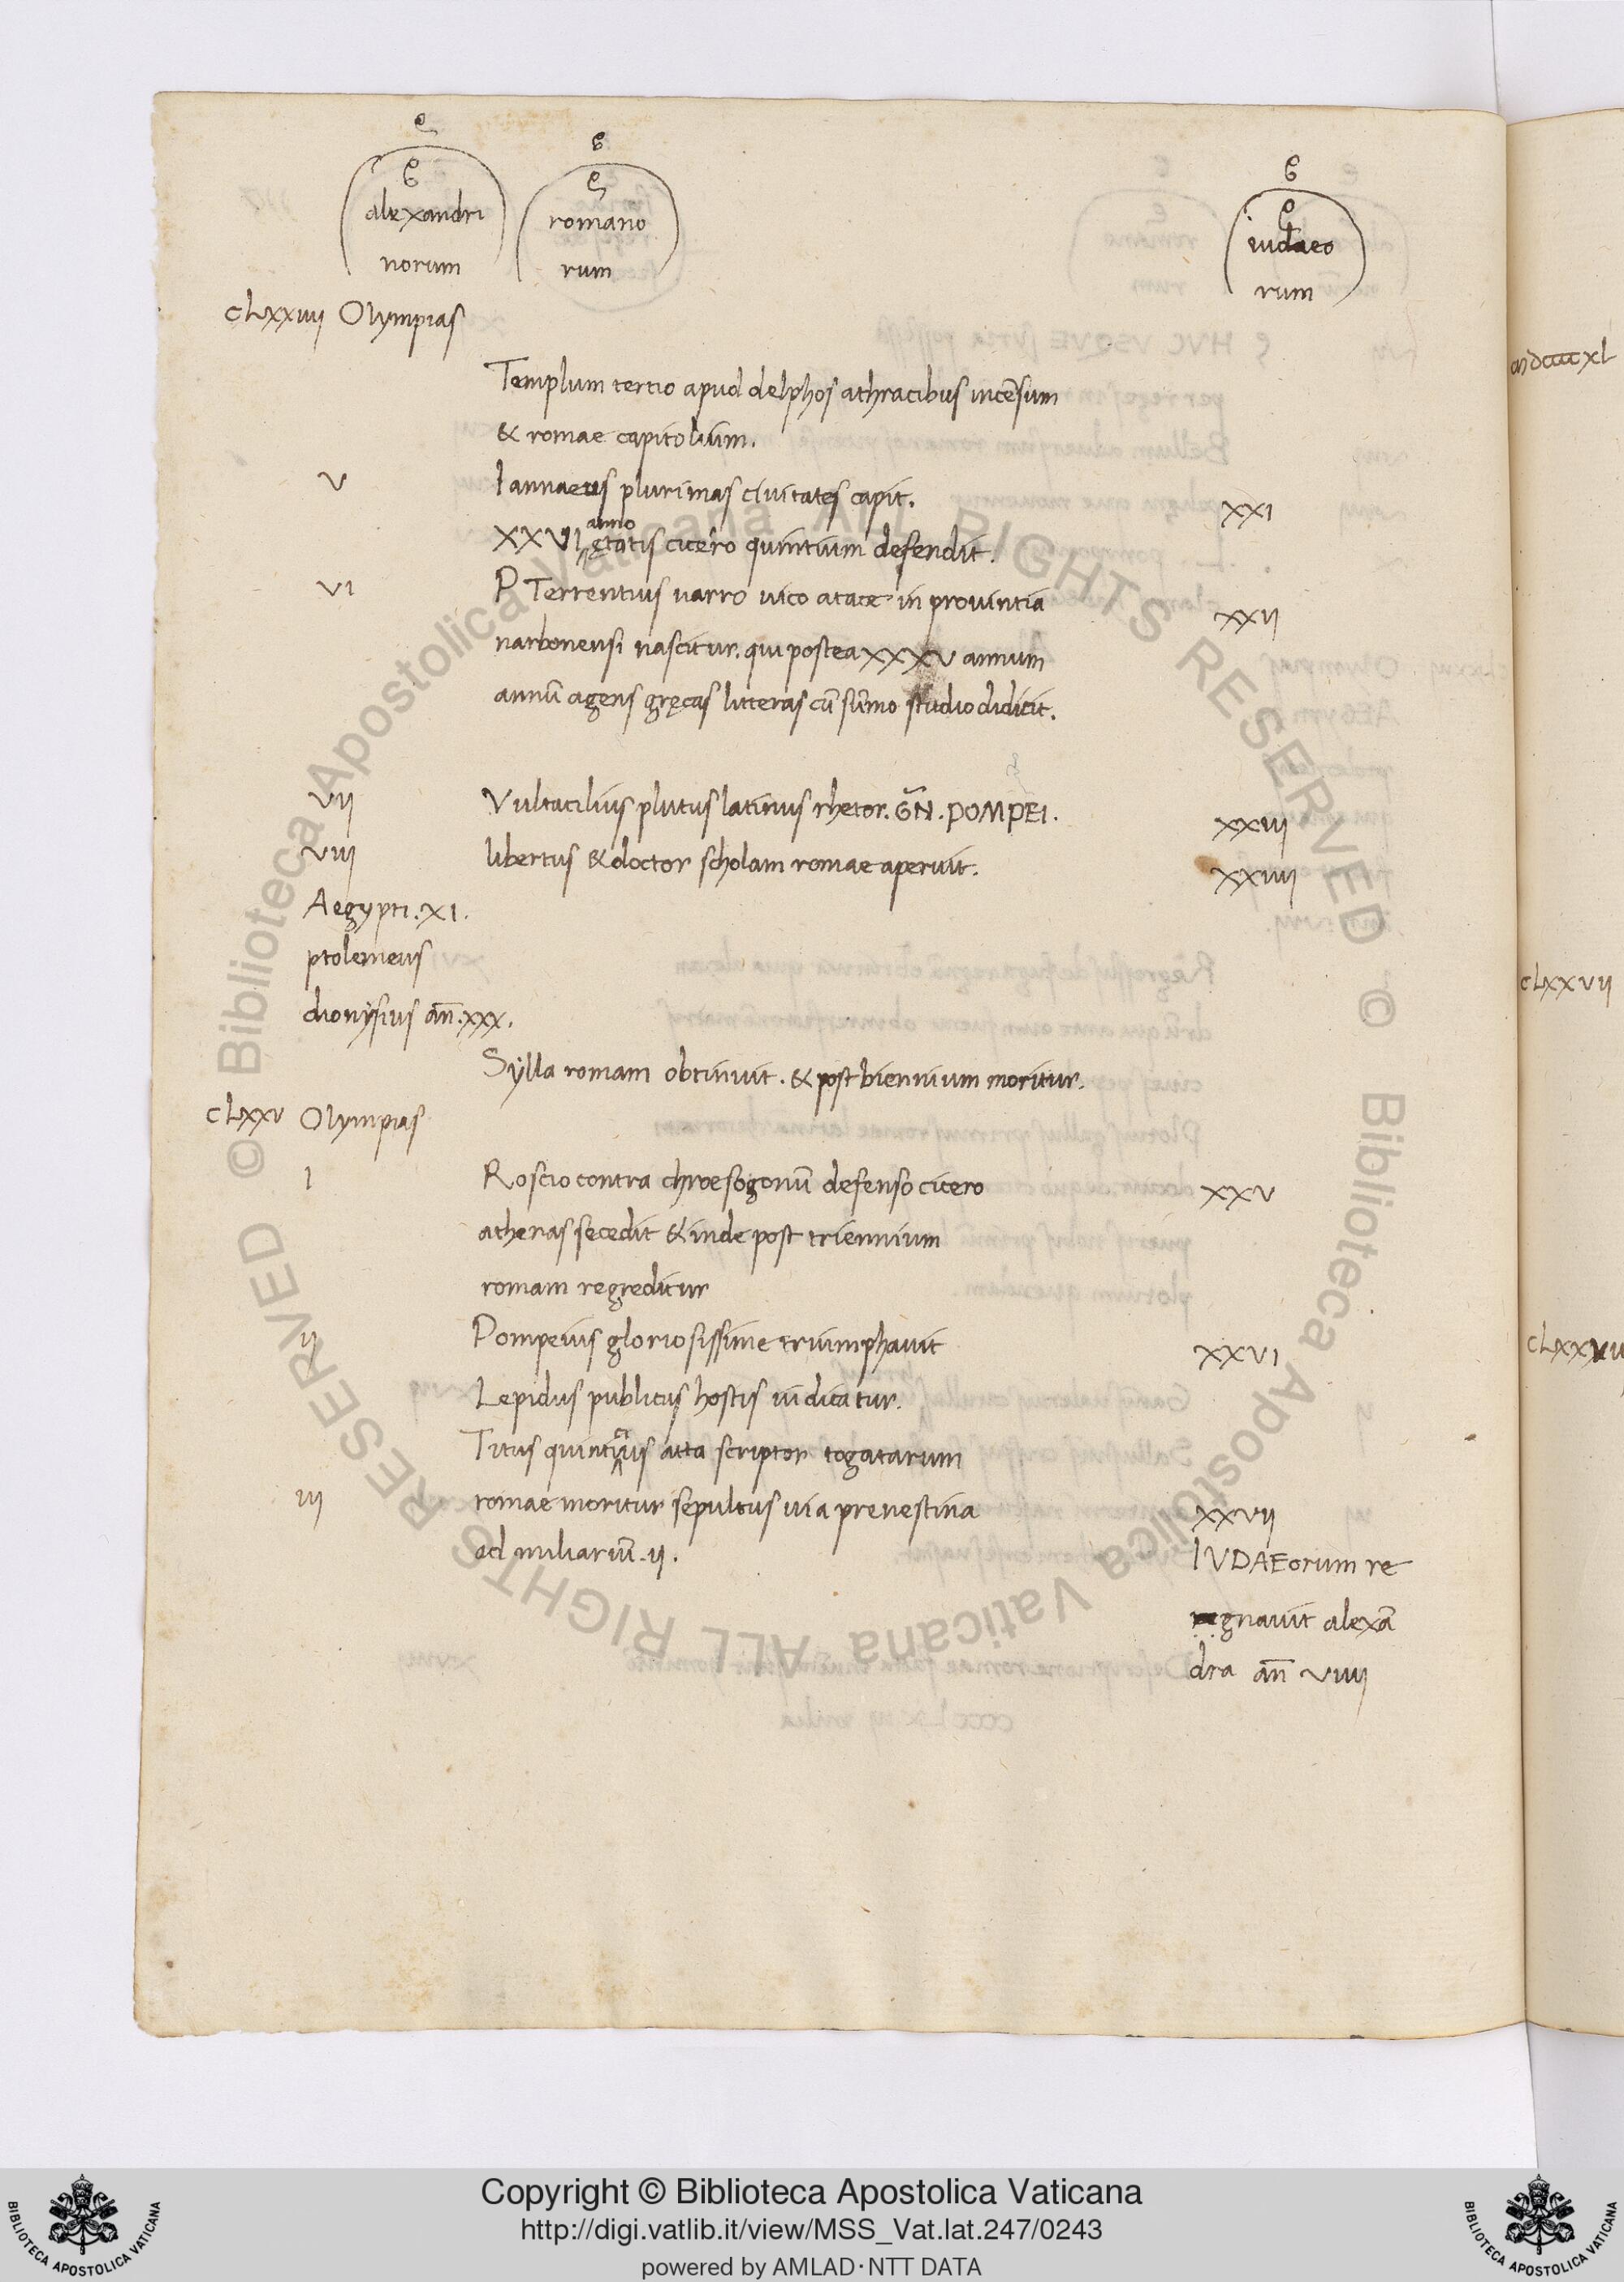 alexandri
norum
romano
rum
iudaeo
rum
CLXXIIII Olympias
Templum tertio apud delphos athracibus incēsum
& romae capitolium.
V Iannaeus plurimas civitates capit. XXI
anno
XXVI ętatis cicero quintium defendit.
VI P Terrentius varro vico atace in provintia XXII
narbonensi nascitur. qui postea XXXV annum
annū agens gręcas litteras cū sūmo studio didicit.
VII Vultacilius plutus latinus rhetor. GN. POMPEI. XXIII
VIII libertus & doctor scholam romae aperuit. XXIIII
Aegypti. XI.
ptolemeus
dionysius an̄. XXX.
Sylla romam obtinuit. & post biennium moritur.
CLXXV Olympias
I Roscio contra chroesogonū defenso cicero XXV
athenas secedit & inde post triennium
romam regreditur
II Pompeius gloriosissime triumphavit XXVI
Lepidus publicus hostis iudicatur.
Titus quintius atta scriptor togatarum
III romae moritur sepultus via prenestina XXVII
ad miliariū. II.
IVDAEorum re
gnavit alexā
dra an̄ VIIII
CLXXVII
© Biblioteca Apostolica Vaticana ALL RIGHTS RESERVED © Biblioteca Apostolica Vaticana ALL RIGHTS RESERVED
Copyright © Biblioteca Apostolica Vaticana
http://digi.vatlib.it/view/MSS_Vat.lat.247/0243
powered by AMLAD·NTT DATA
BIBLIOTECA APOSTOLICA VATICANA
BIBLIOTECA APOSTOLICA VATICANA